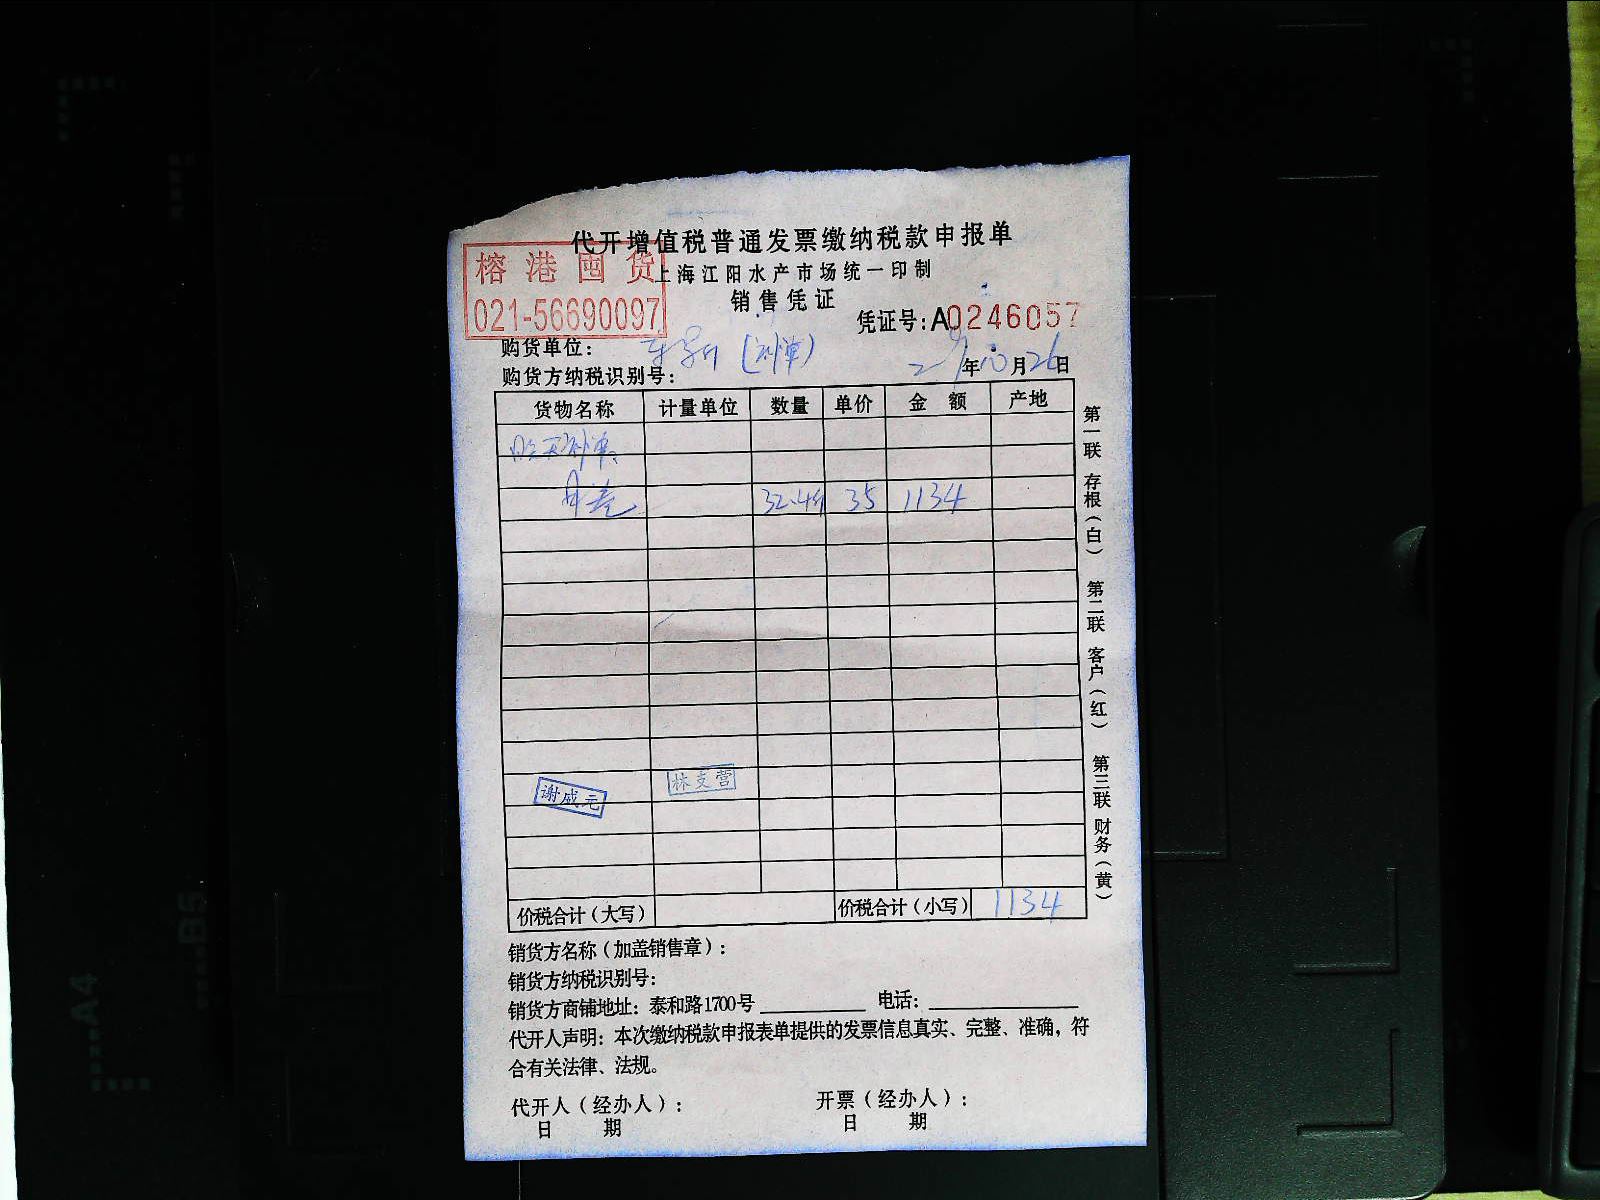 代开增值税普通发票缴纳税款申报单
榕港囤货
上海江阳水产市场统一印制
021-56690097
销售凭证
凭证号：A0246057
购货单位： (补单)
年10月26日
购货方纳税识别号：
货物名称 计量单位 数量 单价 金额 产地
昨天补单：
32.4斤 35 1134
第一联 存根（白） 第二联 客户（红） 第三联 财务（黄）
谢成元
林支营
价税合计（大写） 价税合计（小写） 1134
销货方名称（加盖销售章）：
销货方纳税识别号：
销货方商铺地址：泰和路1700号 电话：
代开人声明：本次缴纳税款申报表单提供的发票信息真实、完整、准确，符
合有关法律、法规。
代开人（经办人）： 开票（经办人）：
日 期 日 期
A4
B5